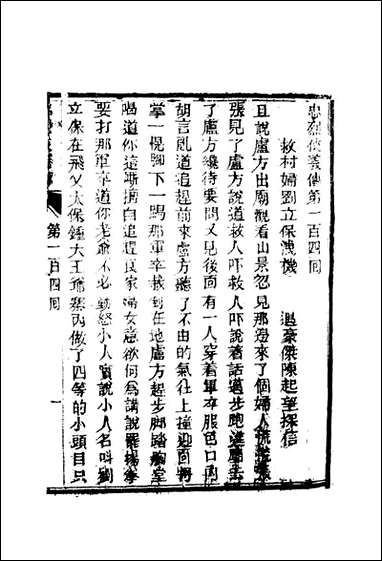 忠烈俠義傳第一百四回
救村婦劉立保洩機 遇豪傑陳起望探信
且說盧方出廟觀看山景忽見那邊來了個婦人慌慌張
張見了盧方說道救人吓救人吓說着話邁步跑進廟去
了盧方纔待要問又見後面有一人穿着軍卒服色口內
胡言亂道追趕前來盧方聽了不由的氣往上撞迎面將
掌一愰脚下一踢那軍卒栽到在地盧方趕步脚踏胸堂
喝道你這厮擅自追趕民家婦女意欲何為講說罷揚拳
要打那軍卒道你老爺不必動怒小人實說小人名叫劉
立保在飛叉太保鍾大王爺寨內做了四等的小頭目只
第一百四回 一